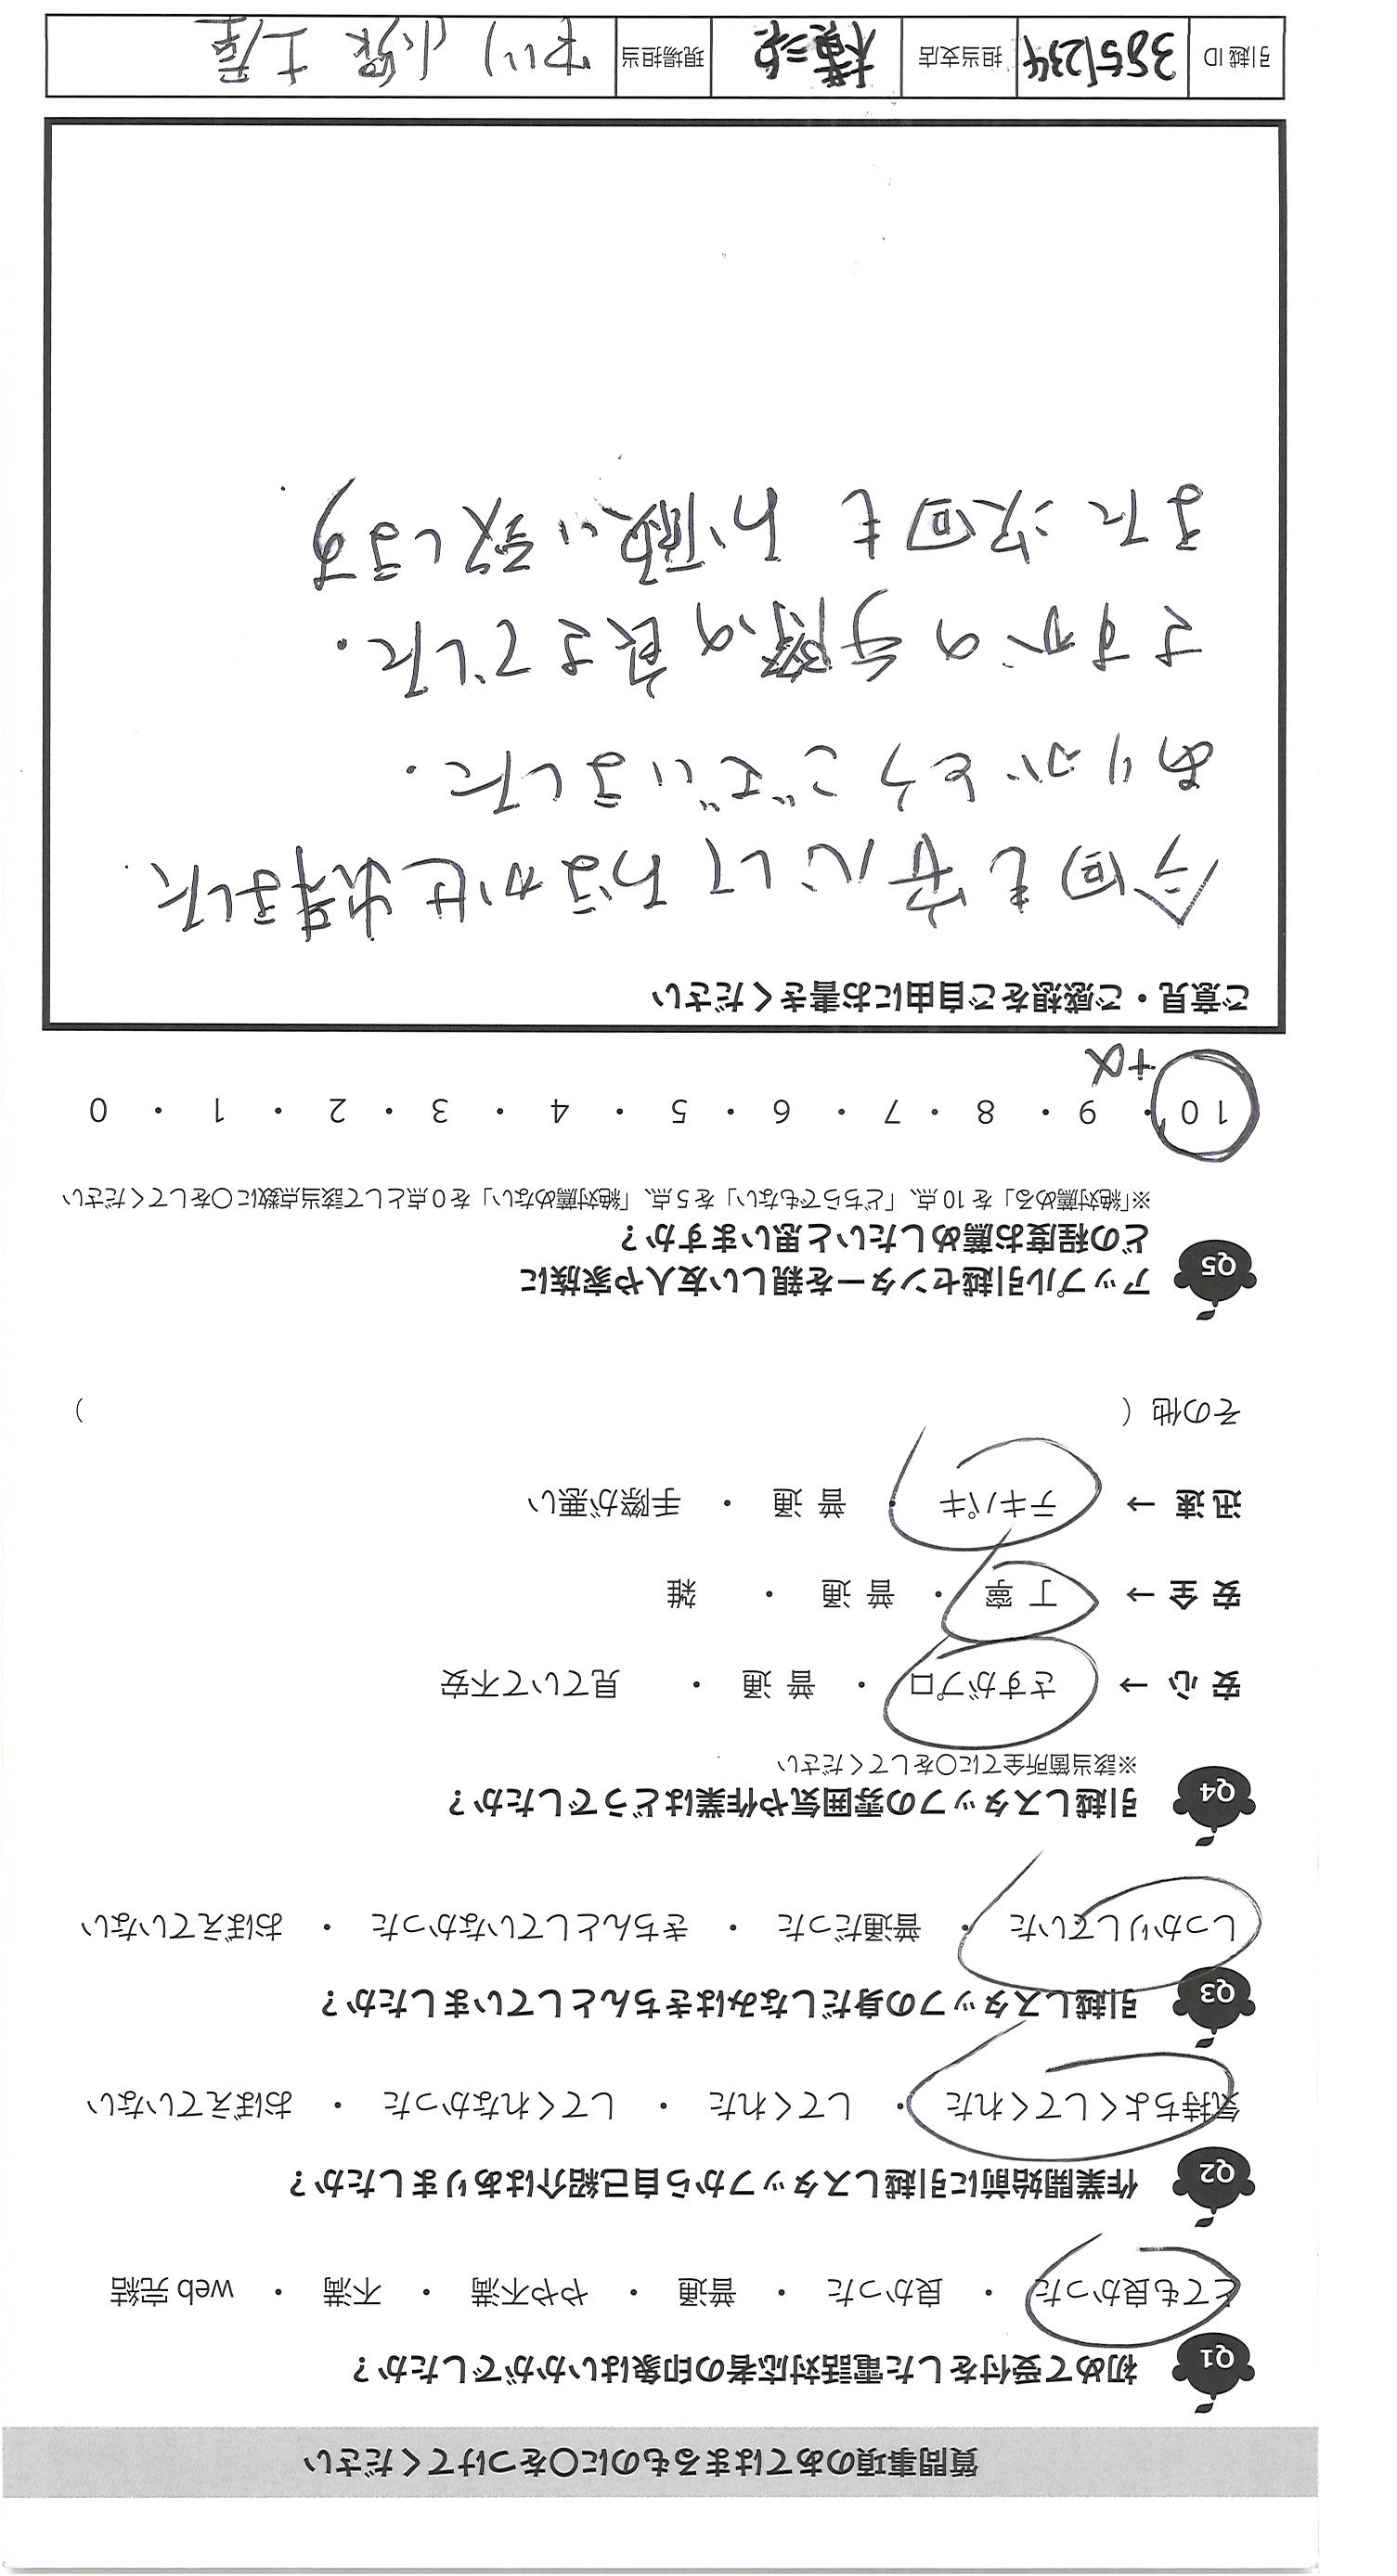 質問事項のあてはまるものに○をつけてください
Q1 初めて受付をした電話対応者の印象はいかがでしたか？
とても良かった ・ 良かった ・ 普通 ・ やや不満 ・ 不満 ・ web 完結
Q2 作業開始前に引越しスタッフから自己紹介はありましたか？
気持ちよくしてくれた ・ してくれた ・ してくれなかった ・ おぼえていない
Q3 引越しスタッフの身だしなみはきちんとしていましたか？
しっかりしていた ・ 普通だった ・ きちんとしていなかった ・ おぼえていない
Q4 引越しスタッフの雰囲気や作業はどうでしたか？
※該当箇所全てに○をしてください
安 心 → さすがプロ ・ 普 通 ・ 見ていて不安
安 全 → 丁 寧 ・ 普 通 ・ 雑
迅 速 → テキパキ ・ 普 通 ・ 手際が悪い
その他（ ）
Q5 アップル引越センターを親しい友人や家族に
どの程度お薦めしたいと思いますか？
※「絶対薦める」を 10 点、「どちらでもない」を 5 点、「絶対薦めない」を 0 点として該当点数に○をしてください
10 ・ 9 ・ 8 ・ 7 ・ 6 ・ 5 ・ 4 ・ 3 ・ 2 ・ 1 ・ 0
+α
ご意見・ご感想をご自由にお書きください
今回も安心しておまかせ出来ました
ありがとうございました.
さすがの手際の良さでした.
また次回もお願い致します
引越 ID 3851234 担当支店 横浜 現場担当 土屋